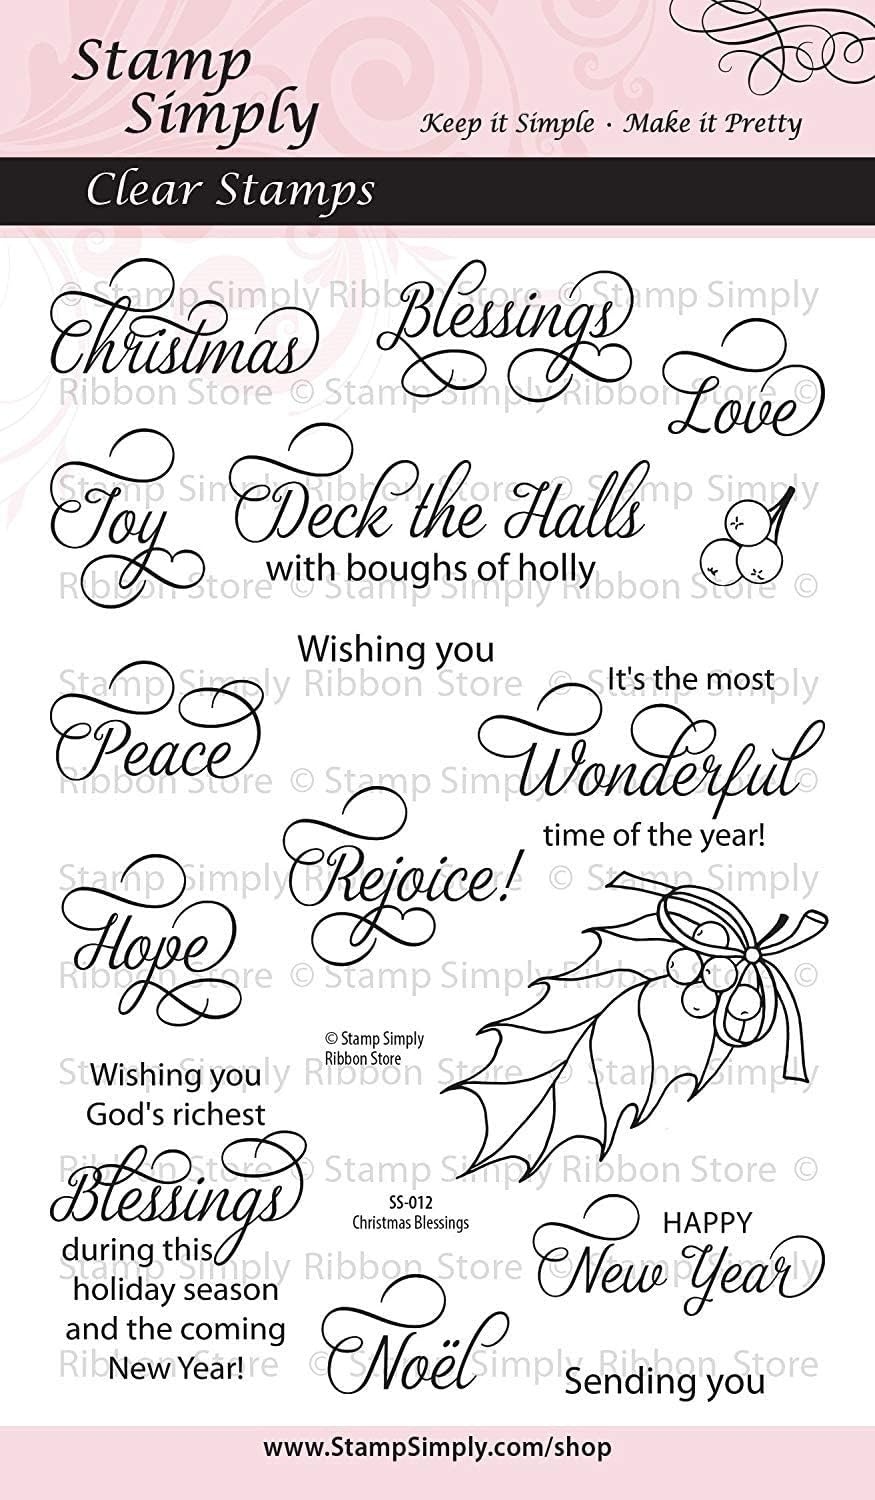 Stamp
Simply
Keep it Simple · Make it Pretty
Clear Stamps
© Stamp Simply Ribbon Store © Stamp Simply
Christmas
Blessings
Ribbon Store © Stamp Simply Ribbon Store ©
Love
Joy
Deck the Halls
Stamp Simply Ribbon Store © Stamp Simply
with boughs of holly
Ribbon Store © Stamp Simply Ribbon Store ©
Wishing you
It's the most
Stamp Simply Ribbon Store © Stamp Simply
Peace
Wonderful
Ribbon Store © Stamp Simply Ribbon Store ©
time of the year!
Rejoice!
Stamp Simply Ribbon Store © Stamp Simply
Hope
Ribbon Store © Stamp Simply Ribbon Store ©
© Stamp Simply
Ribbon Store
Stamp Simply Ribbon Store © Stamp Simply
Wishing you
God's richest
Ribbon Store © Stamp Simply Ribbon Store ©
Blessings
during this
holiday season
and the coming
New Year!
SS-012
Christmas Blessings
HAPPY
New Year
Stamp Simply Ribbon Store © Stamp Simply
Noël
Ribbon Store © Stamp Simply Ribbon Store
Sending you
www.StampSimply.com/shop